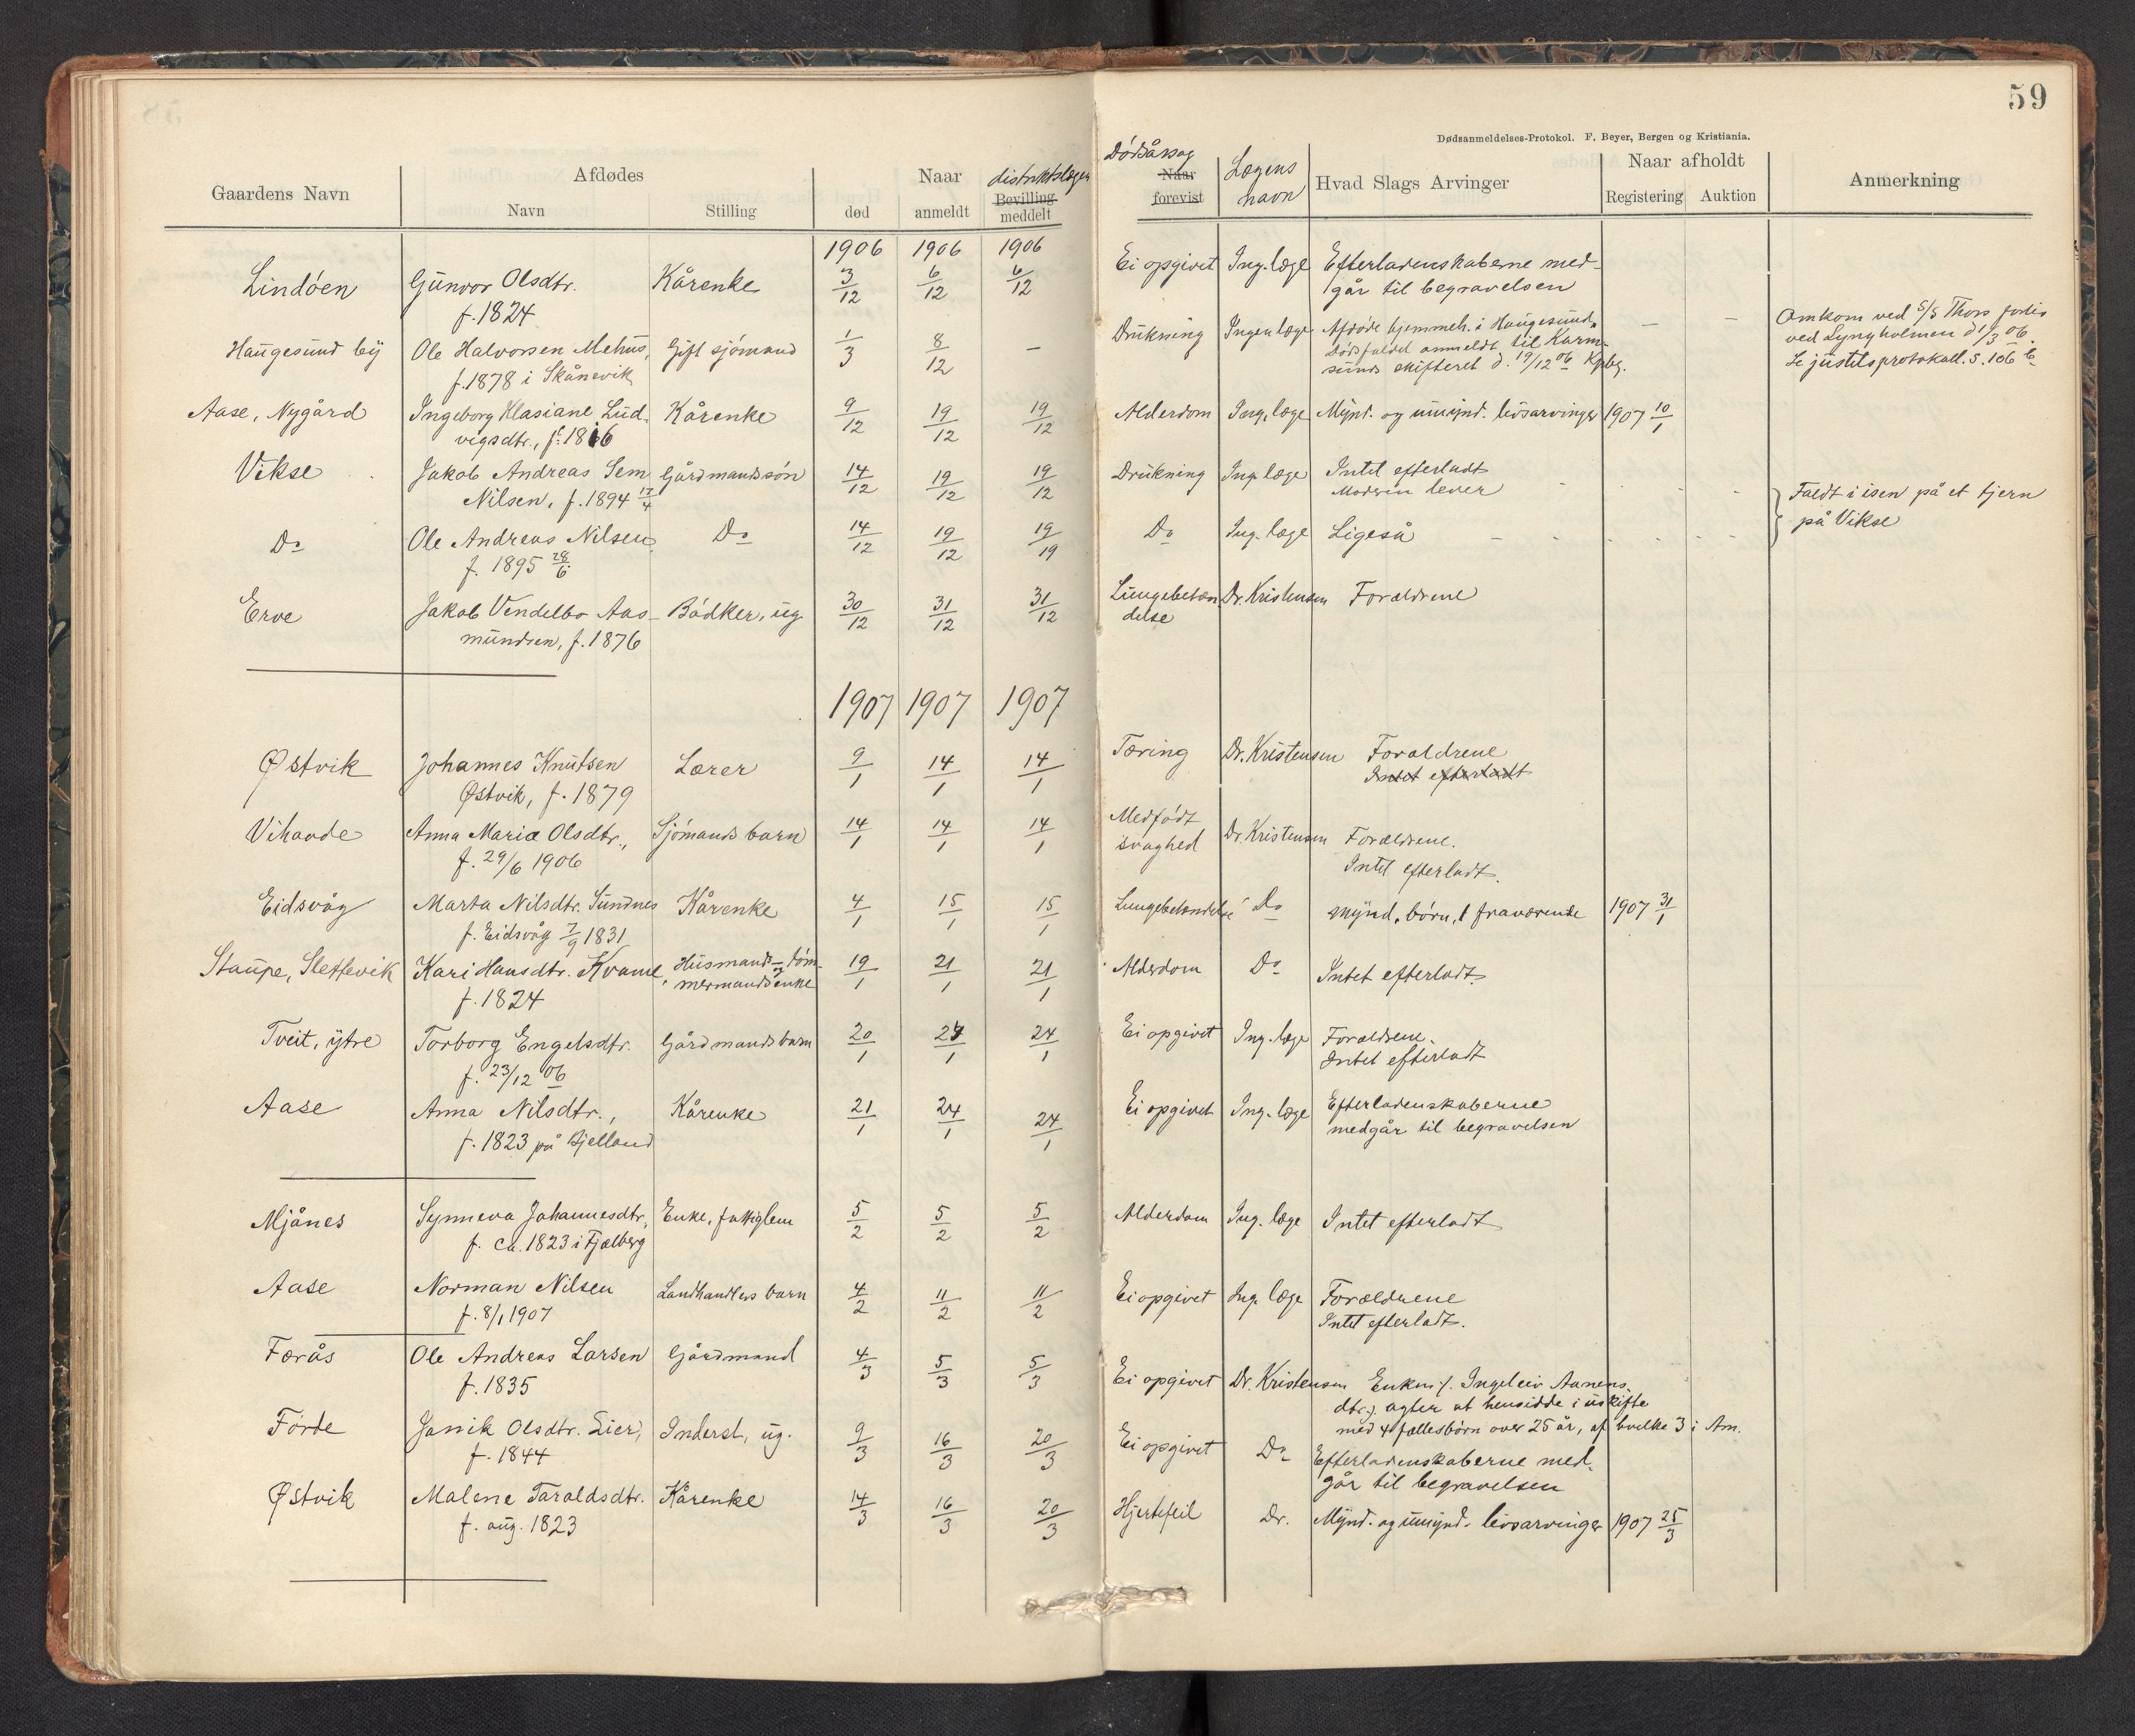 59
Dødsanmeldelses-Protokol. F. Beyer, Bergen og Kristiania.
Gaardens Navn | Afdødes Navn | Stilling | Naar død | anmeldt | distriktslægen Bevilling meddelt | Dödsårsag Naar forevist | Lægens navn | Hvad Slags Arvinger | Naar afholdt Registering | Auktion | Anmerkning
1906 1906 1906
Lindöen | Gunvor Olsdtr. | Kårenke | 3/12 | 6/12 | 6/12 | Ei opgivet | Ing. læge | Efterladenskaberne med-
f. 1824 | går til begravelsen
Haugesund by | Ole Halvorsen Mehus, | Gift sjömand | 1/3 | 8/12 | — | Drukning | Ingen læge | Afdøde hjemmeh. i Haugesund. | — | — | Omkom ved S/S Thors forlis
f. 1878 i Skånevik | Dödsfaldet anmeldt til Karm- | ved Lyngholmen d 1/3 06.
sunds skifteret d. 19/12 06 Kpbg. | Se justitsprotokall. S. 106 b
Aase, Nygård | Ingeborg Klasiane Lud- | Kårenke | 9/12 | 19/12 | 19/12 | Alderdom | Ing. læge | Mynd. og umynd. livsarvinger | 1907 10/1
vigsdtr., f. 1816
Vikse | Jakob Andreas Sem | Gårdmandssön | 14/12 | 19/12 | 19/12 | Drukning | Ing. læge | Intet efterladt
Nilsen, f. 1894 17/4 | Moderen lever | Faldt i isen på et tjern
på Vikse
Do | Ole Andreas Nilsen | Do | 14/12 | 19/12 | 19/19 | Do | Ing. læge | Ligeså
f. 1895 28/6
Erve | Jakob Vendelbo Aas- | Bödker, ug | 30/12 | 31/12 | 31/12 | Lungebetæn- | Dr. Kristensen | Forældrene
mundsen, f. 1876 | delse
1907 1907 1907
Østvik | Johannes Knutsen | Lærer | 9/1 | 14/1 | 14/1 | Tæring | Dr. Kristensen | Forældrene
Østvik, f. 1879 | Intet efterladt
Vihovde | Anna Maria Olsdtr., | Sjömands barn | 14/1 | 14/1 | 14/1 | Medfödt | Dr. Kristensen | Forældrene.
f. 29/6 1906 | svaghed | Intet efterladt.
Eidsvåg | Marta Nilsdtr. Sundnes | Kårenke | 4/1 | 15/1 | 15/1 | Lungebetændelse | Do | Mynd. börn, 1 fraværende | 1907 31/1
f. Eidsvåg 7/9 1831
Staupe, Slettevik | Kari Hansdtr. Kvame, | Husmands- og töm- | 19/1 | 21/1 | 21/1 | Alderdom | Do | Intet efterladt.
f. 1824 | mermandsenke
Tveit, ytre | Torborg Engelsdtr. | Gårdmands barn | 20/1 | 24/1 | 24/1 | Ei opgivet | Ing. læge | Forældrene.
f. 23/12 06 | Intet efterladt
Aase | Anna Nilsdtr., | Kårenke | 21/1 | 24/1 | 24/1 | Ei opgivet | Ing. læge | Efterladenskaberne
f. 1823 på Bjelland | medgår til begravelsen
Mjånes | Synneva Johannesdtr, | Enke, fattiglem | 5/2 | 5/2 | 5/2 | Alderdom | Ing. læge | Intet efterladt
f. ca. 1823 i Fjælberg
Aase | Norman Nilsen | Landhandlers barn | 4/2 | 11/2 | 11/2 | Ei opgivet | Ing. læge | Forældrene
f. 8/1 1907 | Intet efterladt.
Førås | Ole Andreas Larsen | Gårdmand | 4/3 | 5/3 | 5/3 | Ei opgivet | Dr. Kristensen | Enken /: Ingeleiv Aanens-
f. 1835 | dtr :/ agter at hensidde i uskifte
med 4 fællesbörn over 25 år, af hvilke 3 i Am.
Förde | Janik Olsdtr. Lier, | Inderst, ug. | 9/3 | 16/3 | 20/3 | Ei opgivet | Do | Efterladenskaberne med-
f. 1844 | går til begravelsen
Østvik | Malene Taraldsdtr. | Kårenke | 14/3 | 16/3 | 20/3 | Hjertefeil | Do. | Mynd. og umynd. livsarvinger | 1907 25/3
f. aug. 1823